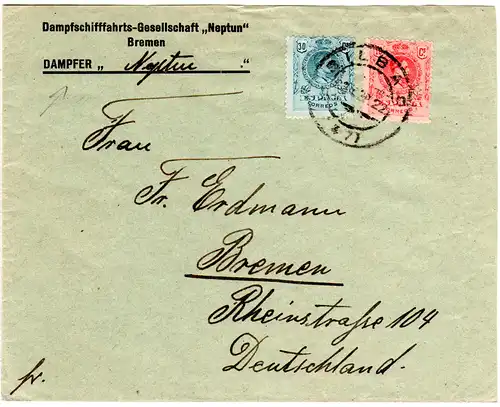 Dampfschifffahrts-Gesellschaft „Neptun"
Bremen
DAMPFER „ Neptun "
30 Cs
CORREOS
BILBAO
22
Frau
Fr. Erdmann
Bremen
Rheinstraße 104
Deutschland.
fr.